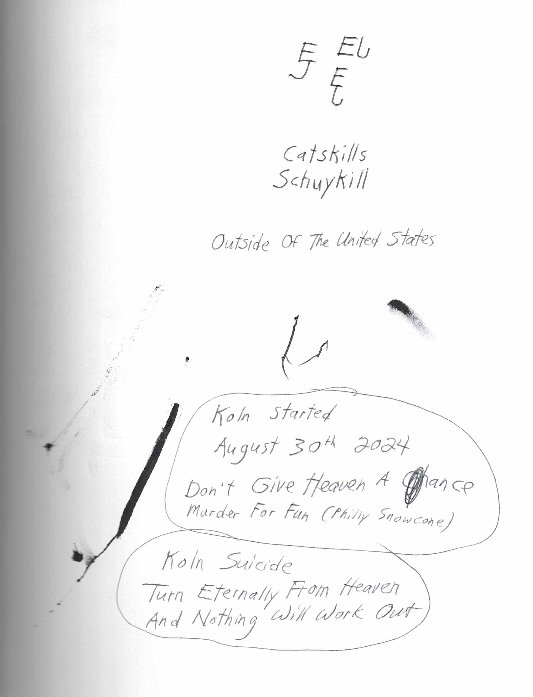 E EL
J E
L
Catskills
Schuykill
Outside Of The United States
Koln Started
August 30th 2024
Don't Give Heaven A Chance
Murder For Fun (Philly Snowcone)
Koln Suicide
Turn Eternally From Heaven
And Nothing Will Work Out